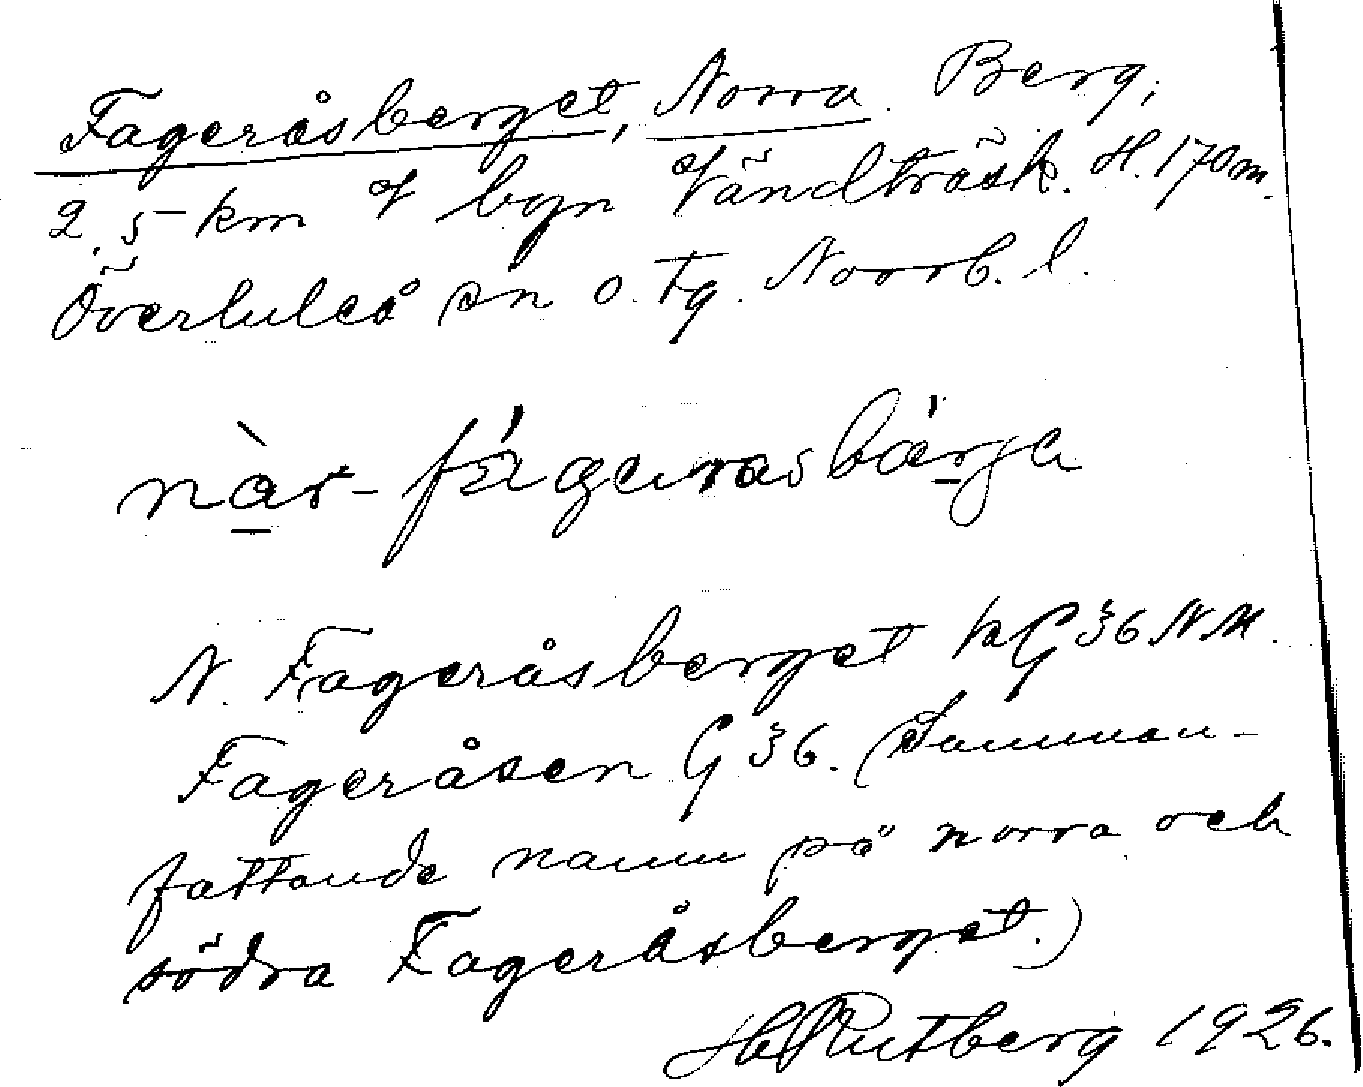 Fageråsberget, Norra. Berg,
2,5 km V byn Vändträsk. H. 170 m.
Överluleå sn o. tg. Norrb. l.
N. Fageråsberget kG 36 NM.
Fageråsen G 36. (Samman-
fattande namn på norra och
södra Fageråsberget.)
Hb Rutberg 1926.